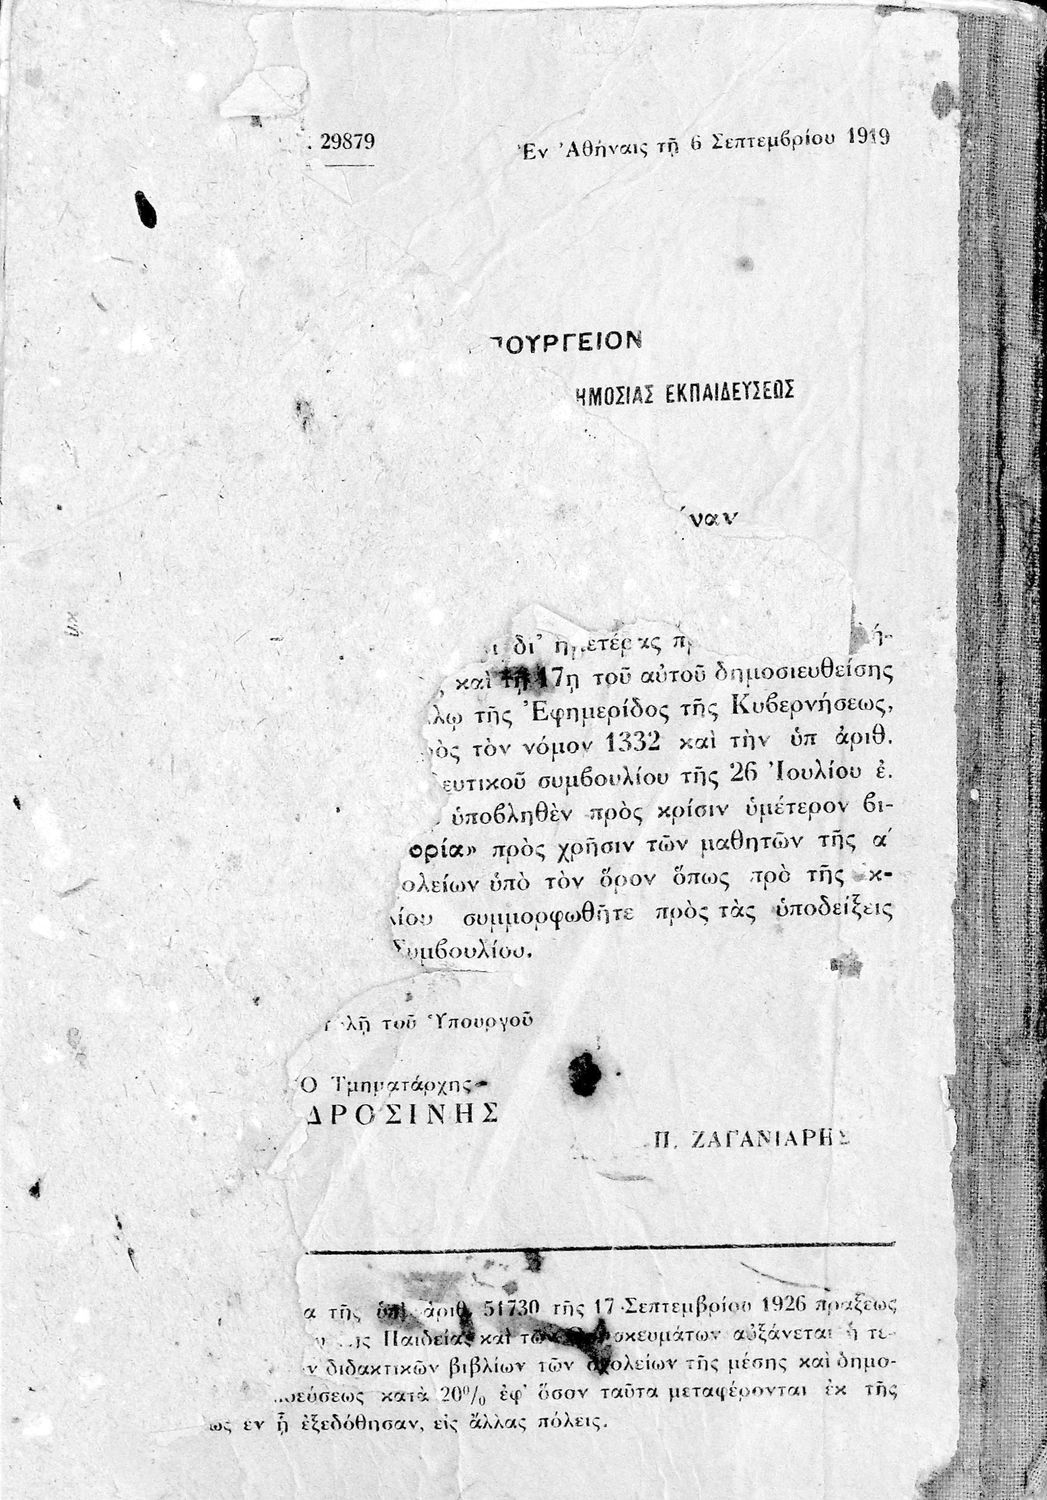 . 29879
Ἐν Ἀθήναις τῇ 6 Σεπτεμβρίου 1919
ΠΟΥΡΓΕΙΟΝ
ΗΜΟΣΙΑΣ ΕΚΠΑΙΔΕΥΣΕΩΣ
δι' ἡμετέρας
καὶ τῇ 17ῃ τοῦ αὐτοῦ δημοσιευθείσης
τῆς Ἐφημερίδος τῆς Κυβερνήσεως,
τὸν νόμον 1332 καὶ τὴν ὑπ ἀριθ.
ευτικοῦ συμβουλίου τῆς 26 Ἰουλίου ἐ.
ὑποβληθὲν πρὸς κρίσιν ὑμέτερον βι-
ορία» πρὸς χρῆσιν τῶν μαθητῶν τῆς α΄
ολείων ὑπὸ τὸν ὅρον ὅπως πρὸ τῆς ἐκ-
ίου συμμορφωθῆτε πρὸς τὰς ὑποδείξεις
Συμβουλίου.
λῇ τοῦ Ὑπουργοῦ
Ὁ Τμηματάρχης
ΔΡΟΣΙΝΗΣ
Π. ΖΑΓΑΝΙΑΡΗΣ
α τῆς ὑπ' ἀριθ. 51730 τῆς 17 Σεπτεμβρίου 1926 πράξεως
Παιδείας καὶ τῶν Θρησκευμάτων αὐξάνεται ἡ τι-
ν διδακτικῶν βιβλίων τῶν σχολείων τῆς μέσης καὶ δημο-
εύσεως κατὰ 20% ἐφ' ὅσον ταῦτα μεταφέρονται ἐκ τῆς
ως ἐν ᾗ ἐξεδόθησαν, εἰς ἄλλας πόλεις.